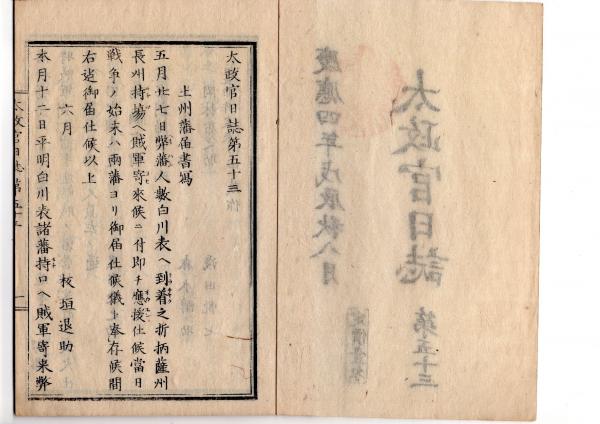 太政官日誌 第五十三
慶應四年戊辰秋八月
太政官日誌第五十三
土州藩届書寫
五月廿七日弊藩人數白川表ヘ到着之折柄薩州
長州持場ヘ賊軍寄來候ニ付即チ應援仕候當日
戰爭ノ始末ハ兩藩ヨリ御届仕候儀ト奉存候間
右迄御届仕候以上
六月 板垣退助
本月十二日平明白川表諸藩持口ヘ賊軍寄来弊
太政官日誌第五十三 一